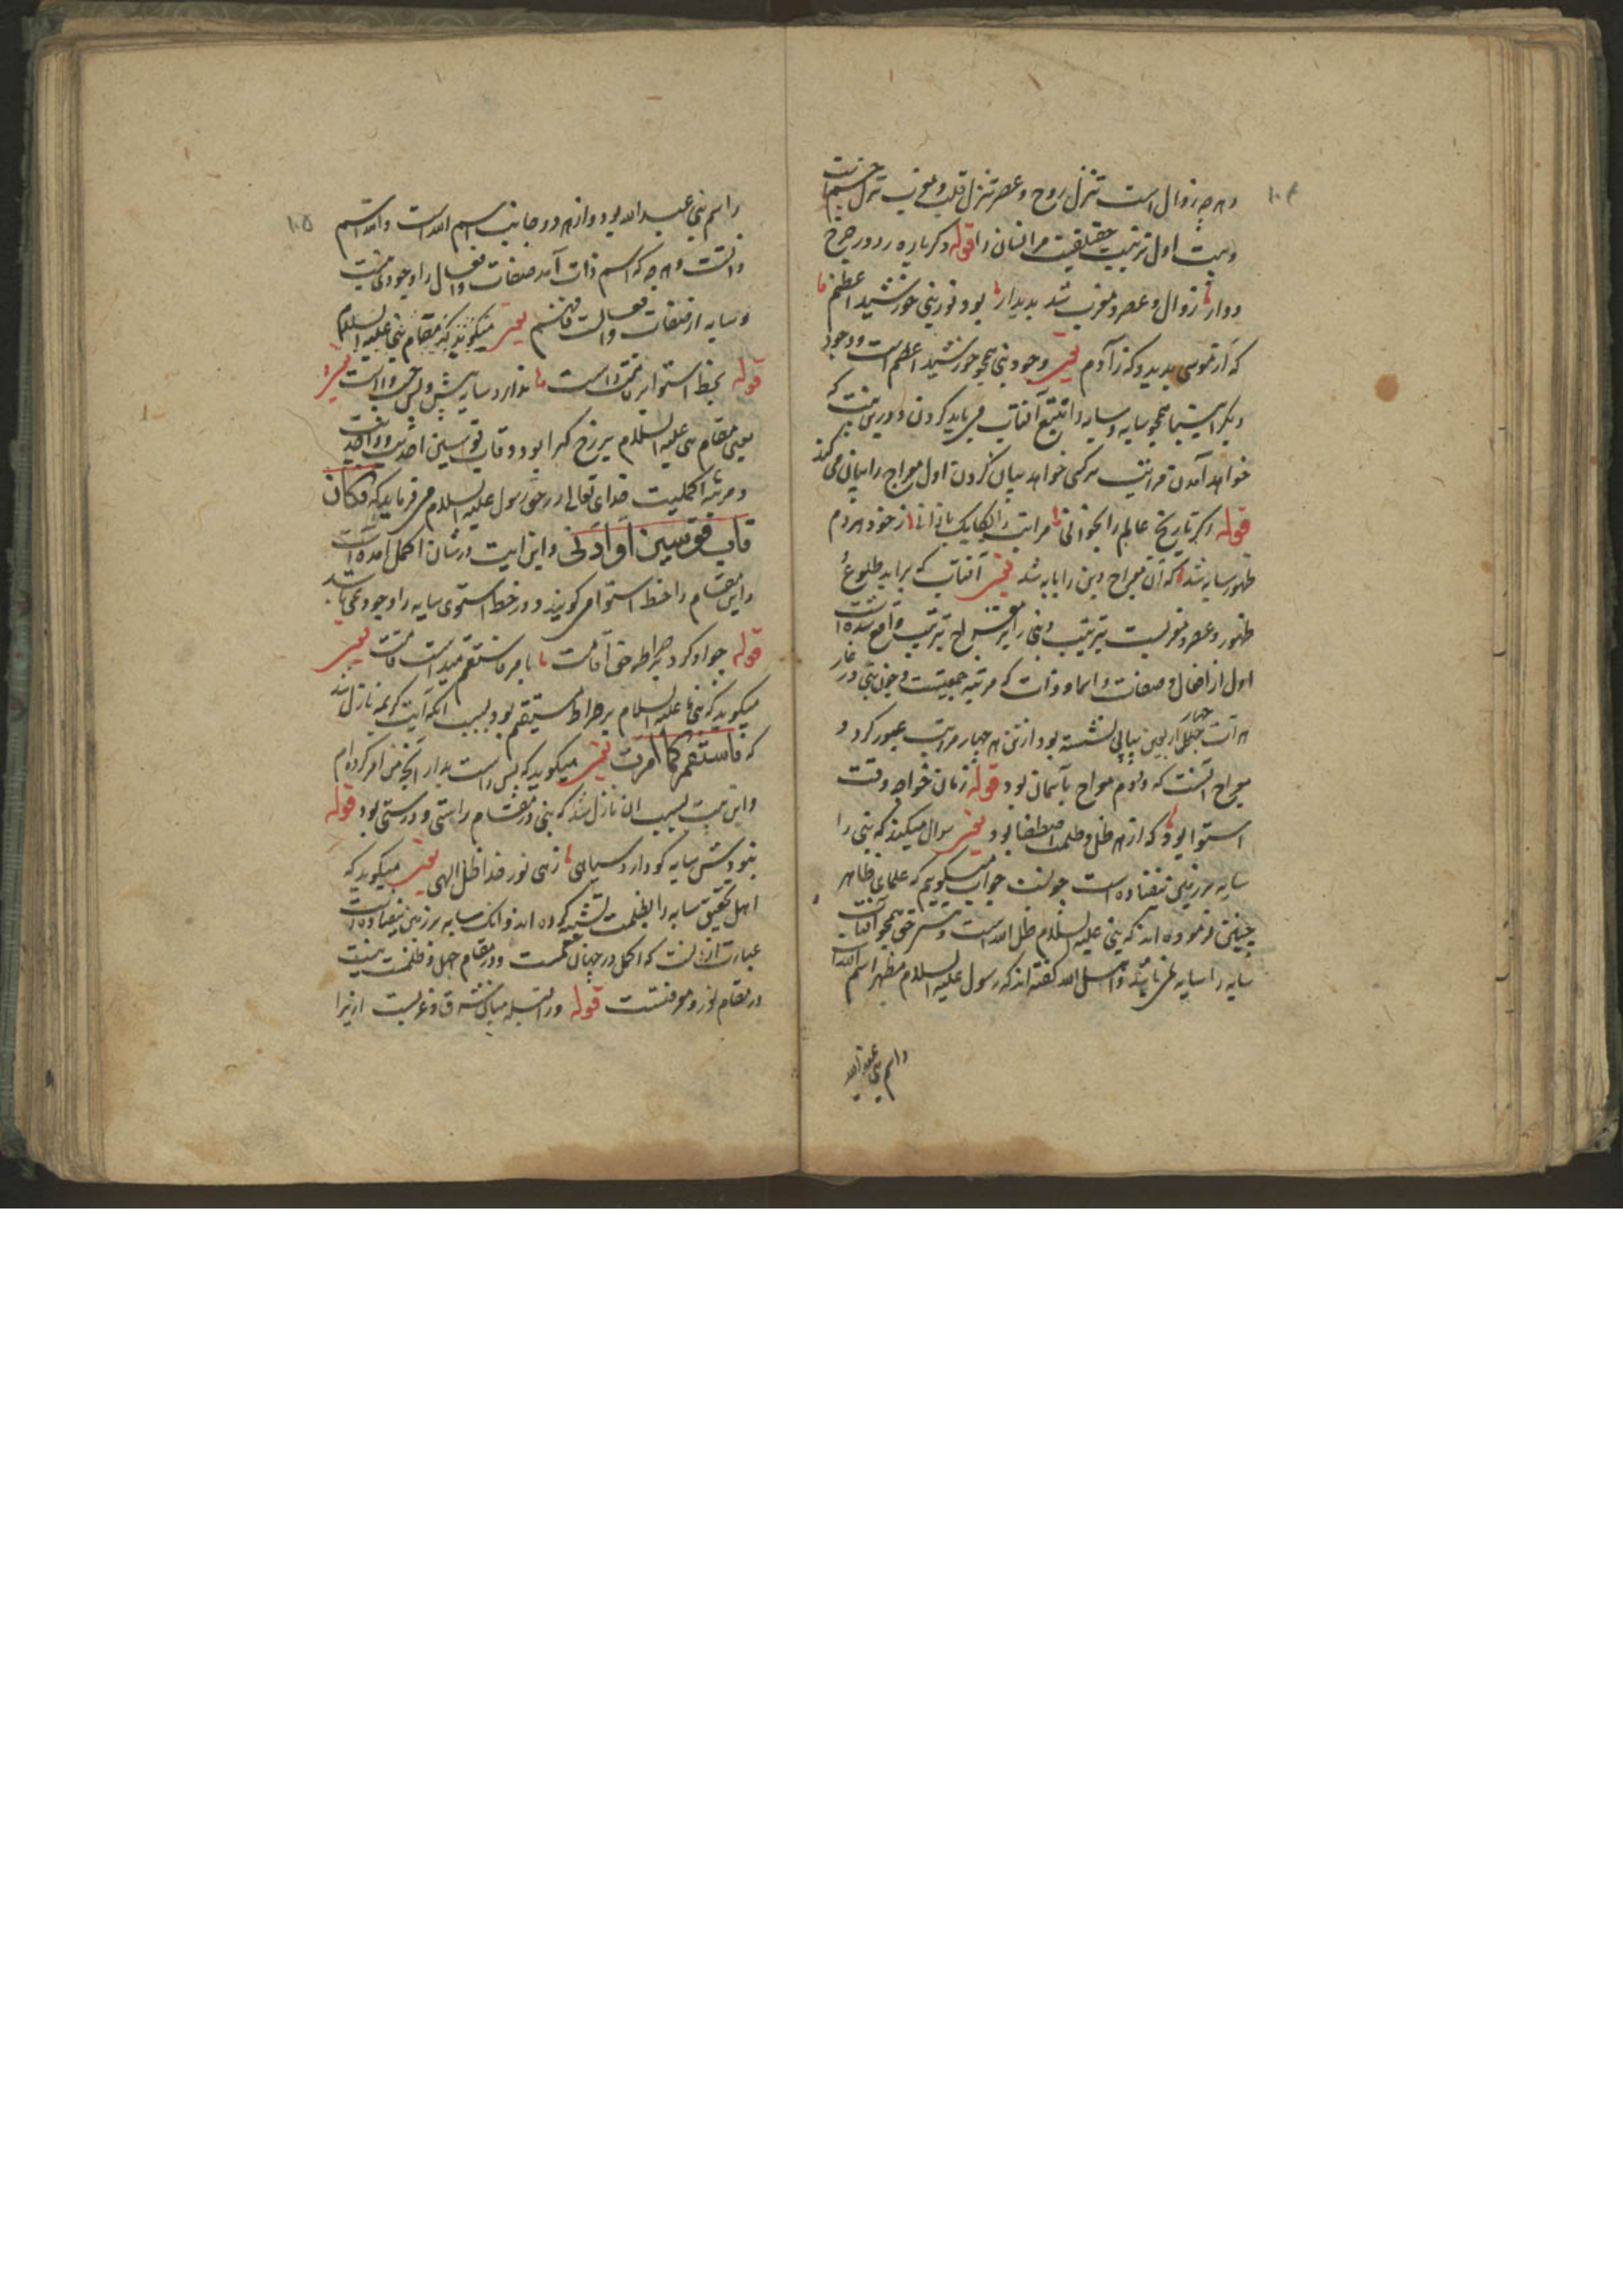 ۱۰۴
و هرچه زوال است تنزل روح و عصر تنزل قلب و مغرب تنزل جسم است
و بیت اول ترتیب حقیقیت مر انسان را قوله دگرباره ز دور چرخ
دوار زوال و عصر و مغرب شد پدیدار بود نور نبی خورشید اعظم
که از موسی پدید و که ز آدم یعنی وجود نبی همچو خورشید اعظم است و وجود
دیگر انبیا همچو سایه و سایه را تتبع آفتاب می باید کردن و درین بیت که
خواهد آمدن مراتب ترکی خواهد بیان کردن اول معراج را بیان می کند
قوله اگر تاریخ عالم را بخوانی مراتب را یکایک باز دانی ز خود هر دم
ظهور سایه شد که آن معراج دین را پایه شد یعنی آفتاب که برآید طلوع
ظهور و عصر و مغربست بترتیب و نبی را نیز معراج بترتیب واقع شده است
اول از افعال و صفات و اسما و ذات که مرتبه جمعیتست و چون نبی در غار
چهل اربعین بیاپی نشسته بود ازین هر چهار مراتب عبور کرد و
معراج آنست که دوم معراج بآسمان بود قوله زمان خواجه وقت
استوا بود که از هر ظل و ظلمت مصطفا بود یعنی سوال میکند که نبی را
سایه بر زمین نیفتاده است چونست جواب میگویم که علمای ظاهر
چنین فرموده اند که نبی علیه السلام ظل الله است و حق همچو آفتاب
سایه را سایه نمی باشد و اهل الله گفته اند که رسول علیه السلام مظهر اسم الله است
و اسم نبی عبد الله
۱۰۵
و اسم نبی عبد الله بود و از هر دو جانب اسم الله است و الله اسم
ذاتست و هرچه که اسم ذات آمد صفات و افعال را وجودی نیست
و سایه از صفات و افعالست فافهم یعنی میگویند که مقام نبی علیه السلام
قوله بخط استوا بر قامت راست ندارد سایه پیش و پس چپ و راست یعنی
یعنی مقام نبی علیه السلام برزخ کبرا بود و قاب قوسین احدیت و واحدیت
و مرتبه اکملیت خدای تعالی در حق رسول علیه السلام می فرماید که فکان
قاب قوسین او ادنی و این ایت در شان اکمل آمده است
و این مقام را خط استوا می گویند و در خط استوی سایه را وجود نمی باشد
قوله چو او کرد بر صراط حق اقامت با مر فاستقم میداشت قامت یعنی
میگوید که نبی علیه السلام بر صراط مستقیم بود بسبب آنکه آیت کریمه نازل شد
که فاستقم کما امرت یعنی میگوید که پس راست بدار آنچه من امر کرده ام
و این بیت بسبب ان نازل شد که نبی در مقام راستی و درستی بود قوله
نبودش سایه کو دارد سیاهی زهی نور خدا ظل الهی یعنی میگوید که
اهل تحقیق سایه را بظلمت تشبیه کرده اند و آنک سایه بر زمین نیفتاده است
عبارت از آنست که اکمل در جهان و در مقام جهل و ظلمت نیست
در مقام نور و معرفتست قوله ورا قبله میان شرق و غربست ازیرا